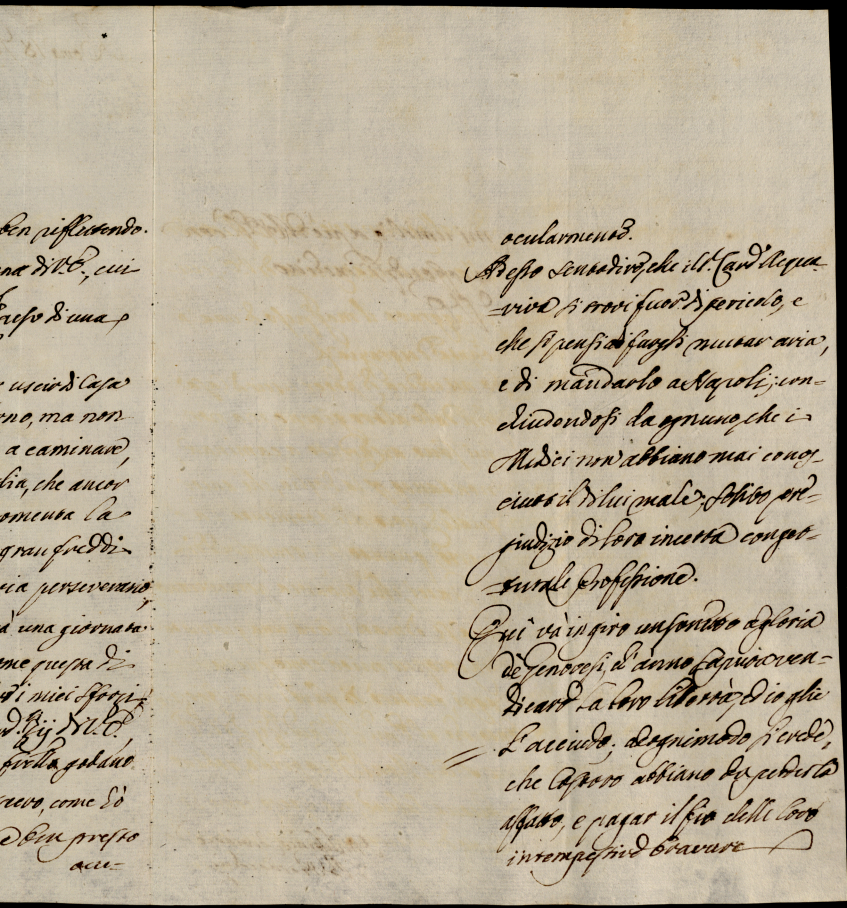 ben riflettendo.
na di V.E., cui
preso di una
uscir di Casa
rno, ma non
a caminare,
lia, che ancor
omenta la
gran freddi
ria perseverano,
à una giornata
ome questa di
i miei sforzi
di V.E.,
godano
come hò
ben presto
ocu-
ocularmente.
Adesso sento dire, che il S.r Card.l Acqua-
viva si trovi fuori di pericolo, e
che si pensi di fargli mutar aria,
e di mandarlo a Napoli; con-
cludendosi da ognuno, che i
Medici non abbiano mai conos-
ciuto il di lui male; solito pre-
giudizio di loro incerta conget-
turale Professione.
Qui và in giro un sonetto a gloria
de Genovesi, ch'anno saputo ven-
dicare la loro libertà, ed io glie
l'accludo; ad ogni modo si crede,
che costoro abbiano da perderla
affatto, e pagar il fio delle loro
intempestive bravure